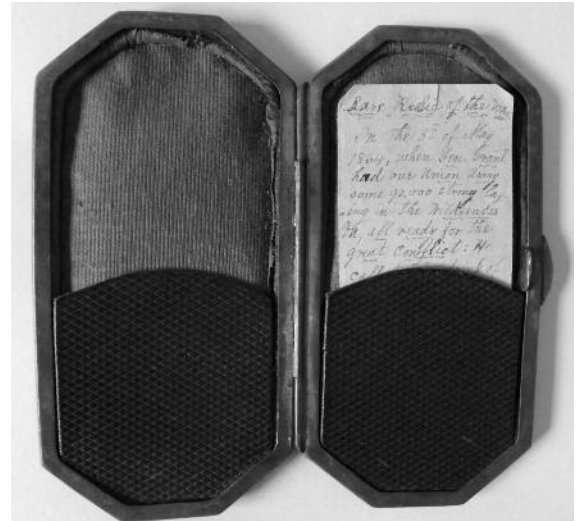 Rare Relic of the Wa
In the 3d of May
1864, when Gen Grant
had our Union Army
some 90,000 strong lay
-ing in the Wilderness
Va, all ready for the
great Conflict: He